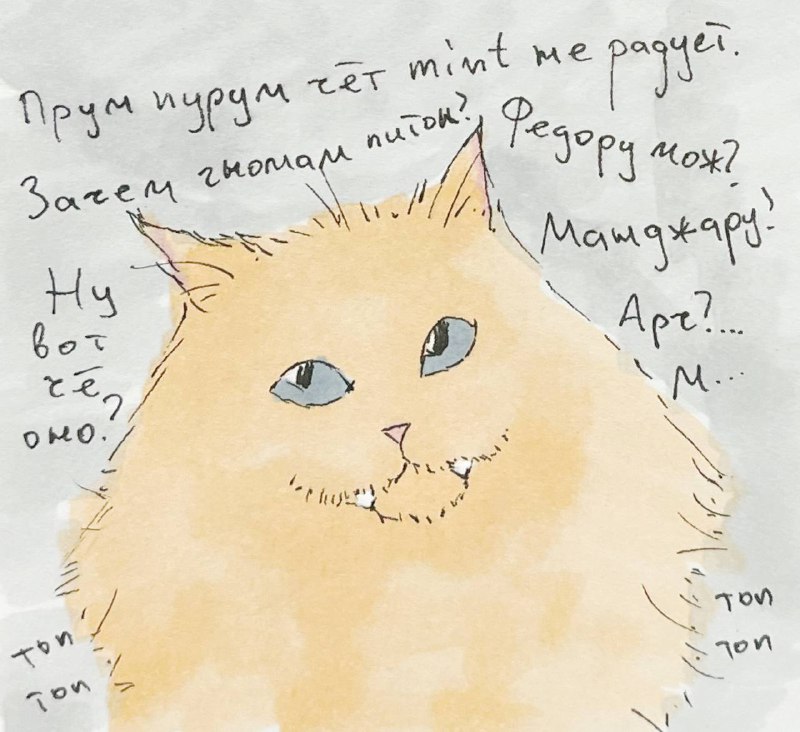 Прум пурум чёт mint не радует.
Зачем гномам питон?
Федору мож?
Манджару?
Арч?...
М...
Ну
вот
чё
оно?
топ
топ
топ
топ